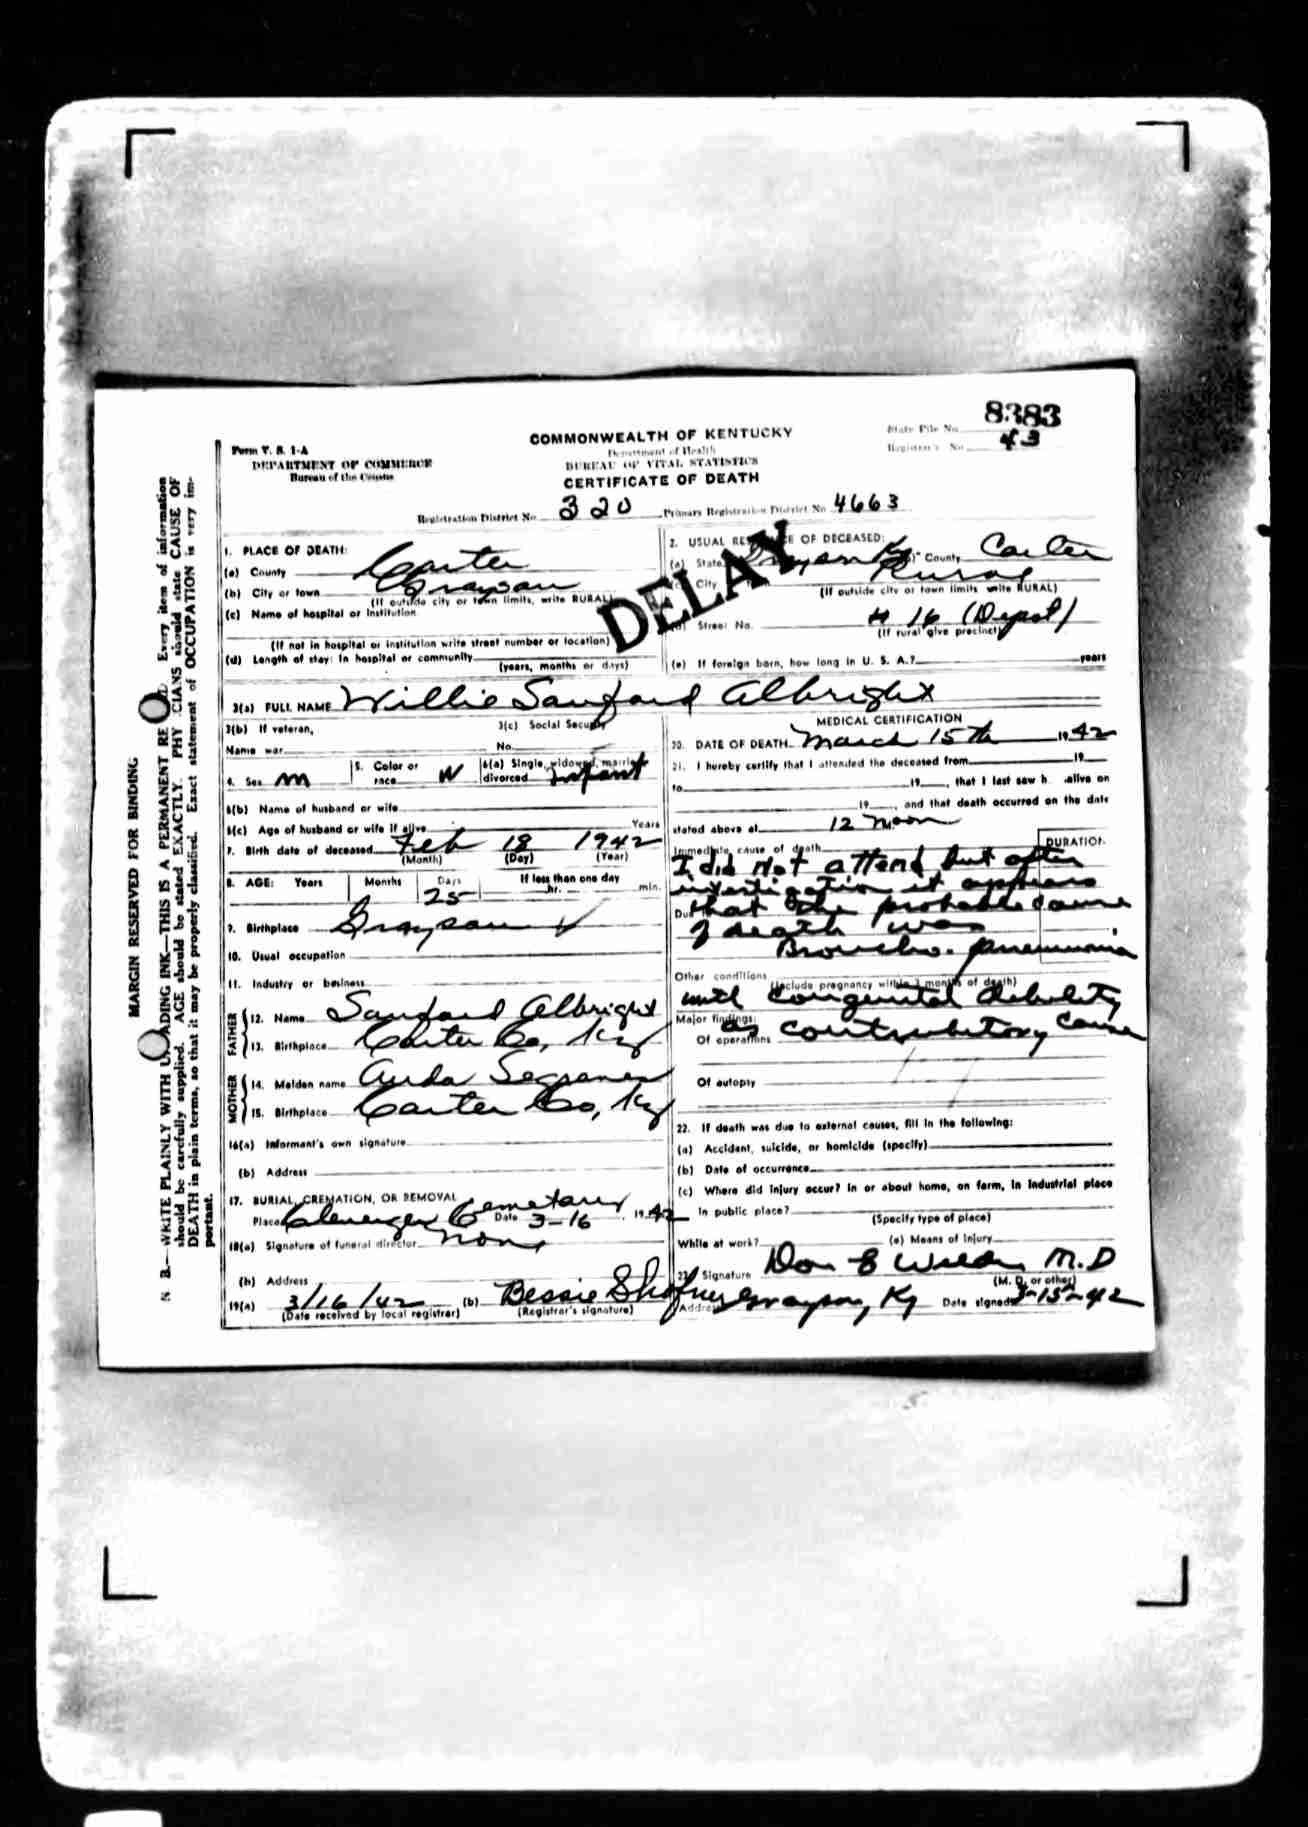 8383
State File No.
Registrar's No. 43
Form V. S. 1-A
DEPARTMENT OF COMMERCE
Bureau of the Census
COMMONWEALTH OF KENTUCKY
Department of Health
BUREAU OF VITAL STATISTICS
CERTIFICATE OF DEATH
Registration District No. 320 Primary Registration District No. 4663
DELAY
MARGIN RESERVED FOR BINDING
N. B.—WRITE PLAINLY WITH UNFADING INK—THIS IS A PERMANENT RE Every item of information
should be carefully supplied. AGE should be stated EXACTLY. PHY CIANS should state CAUSE OF
DEATH in plain terms, so that it may be properly classified. Exact statement of OCCUPATION is very im-
portant.
1. PLACE OF DEATH:
(a) County Carter
(b) City or town Grayson
(If outside city or town limits, write RURAL)
(c) Name of hospital or institution
(If not in hospital or institution write street number or location)
(d) Length of stay: In hospital or community
(years, months or days)
2. USUAL RES CE OF DECEASED:
(a) State Grayson Ky County Carter
(c) City Rural
(If outside city or town limits write RURAL)
Street No. # 16 (Depot)
(If rural give precinct)
(e) If foreign born, how long in U. S. A.? years
3(a) FULL NAME Willie Sanford Albright
3(b) If veteran,
Name war
3(c) Social Security
No.
4. Sex M
5. Color or
race W
6(a) Single, widowed, married
divorced Infant
6(b) Name of husband or wife
6(c) Age of husband or wife if alive Years
7. Birth date of deceased Feb 18 1942
(Month) (Day) (Year)
8. AGE: Years Months Days If less than one day
25 hr. min.
9. Birthplace Grayson
10. Usual occupation
11. Industry or business
FATHER
12. Name Sanford Albright
13. Birthplace Carter Co, Ky
MOTHER
14. Maiden name
15. Birthplace Carter Co, Ky
16(a) Informant's own signature
(b) Address
17. BURIAL, CREMATION, OR REMOVAL
Place Cemetary Date 3-16 1942
18(a) Signature of funeral director None
(b) Address
19(a) 3/16/42 (b) Bessie Shofner
(Date received by local registrar) (Registrar's signature)
MEDICAL CERTIFICATION
20. DATE OF DEATH March 15th 1942
21. I hereby certify that I attended the deceased from 19
to 19 , that I last saw h alive on
19 , and that death occurred on the date
stated above at 12 noon
Immediate cause of death DURATION
I did not attend but after
investigation it appears
Du that the probable cause
of death was
Broncho-pneumonia
Other conditions
(Include pregnancy within 3 months of death)
with congenital debility
Major findings:
as contributory cause
Of operations
Of autopsy
22. If death was due to external causes, fill in the following:
(a) Accident, suicide, or homicide (specify)
(b) Date of occurrence
(c) Where did injury occur? In or about home, on farm, in industrial place
in public place?
(Specify type of place)
While at work? (e) Means of Injury
23. Signature Don B M.D
(M. D. or other)
Address Grayson, Ky Date signed 3-15-42